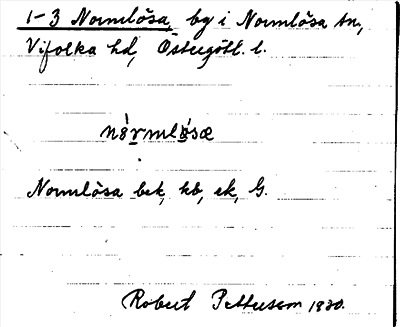 1-3 Normlösa, by i Normlösa sn,
Vifolka hd, Östergötl. l.
Normlösa bek, hb, ek, G.
Robert Pettersson 1930.